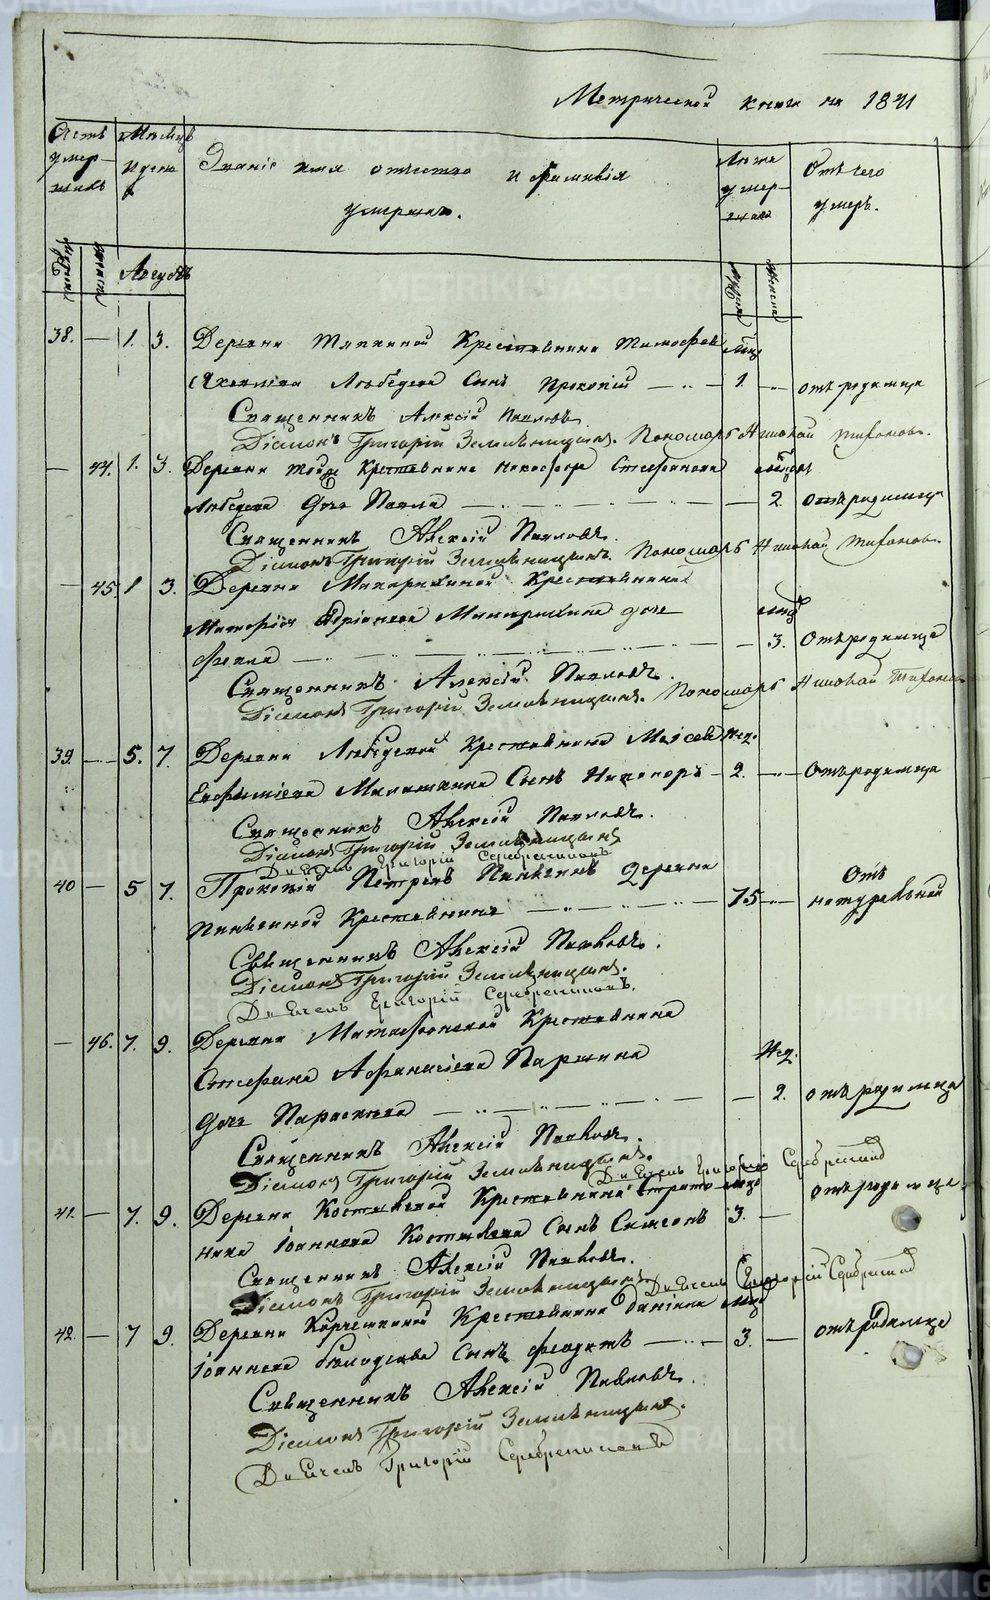 Метрической книги на 1841
Счетъ умер-шихъ
Месяцъ и день
Званіе имя отчество и фамилія умершихъ.
Лета умер-шаго
Отъ чего умеръ.
Августъ
38. — 1. 3. Деревни Крестьянина Тимофея мѣс
Лебедева Сынъ Прокопій — 1. — отъ родимца
Священникъ Алексій Павловъ
Діаконъ Григорій Земляницынъ. Пономарь Николай Тифоновъ.
— 44. 1. 3. Деревни той же Крестьянина Никифора Стефанова
Лебедева дочь Павла — 2. отъ родимца
Священникъ Алексій Павловъ.
Діаконъ Григорій Земляницынъ. Пономарь Николай Тифоновъ.
— 45. 1 3. Деревни Макарихиной Крестьянина
Адріанова Макарихина дочь
Фекла — 3. Отъ родимца
Священникъ Алексій Павловъ.
Діаконъ Григорій Земляницынъ. Пономарь Николай Тифоновъ
39. — 5. 7. Деревни Лебедевой Крестьянина Моисея Нед.
Евфиміева Сынъ Никаноръ — 2. — Отъ родимца
Священникъ Алексій Павловъ.
Діаконъ Григорій Земляницынъ
Дьячекъ Григорій Серебрениковъ
40 — 5 7. Прокопій Петровъ Пинягинъ деревни
Пинягиной Крестьянинъ — 75 — Отъ натуральной
Священникъ Алексій Павловъ.
Діаконъ Григорій Земляницынъ.
Дьячекъ Григорій Серебрениковъ.
— 46. 7. 9. Деревни Крестьянина
Стефана Афанасіева Паршина Нед.
дочь Параскева — 2. отъ родимца
Священникъ Алексій Павловъ.
Діаконъ Григорій Земляницынъ.
Дьячекъ Григорій Серебрениковъ
41. — 7. 9. Деревни Костылевой Крестьянина Страто- отъ родимца.
ника Іоаннова Костылева Сынъ Симеонъ 3. —
Священникъ Алексій Павловъ.
Діаконъ Григорій Земляницынъ
Дьячекъ Григорій Серебрениковъ
42. — 7 9. Деревни Крестьянина Даніила мѣс
Іоаннова Сынъ Феодотъ — 3. — отъ родимца
Священникъ Алексій Павловъ.
Діаконъ Григорій Земляницынъ.
Дьячекъ Григорій Серебрениковъ
METRIKI.GASO-URAL.RU